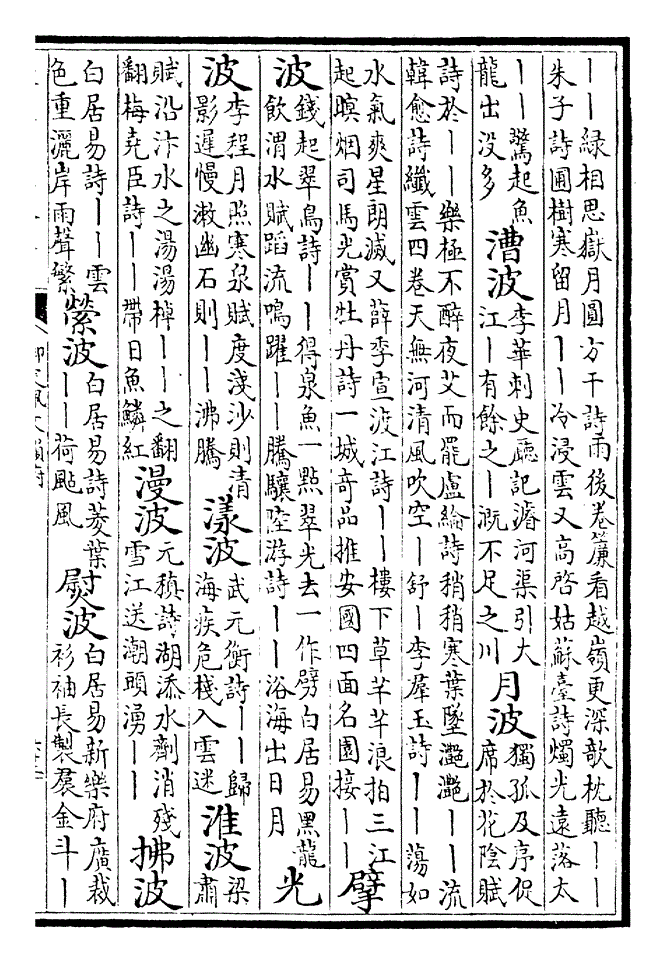 ｜｜緑相思嶽月圓方干詩雨後卷簾看越嶺更深欹枕聽｜｜
朱子詩圃樹寒留月｜｜冷浸雲又高啓姑蘇臺詩燭光遠落太
｜｜驚起魚
龍出没多
漕波
李華刺史廳記濬河渠引大
江｜有餘之｜溉不足之川
月波
獨孤及序促
席於花陰賦
詩於｜｜樂極不醉夜艾而罷盧綸詩稍稍寒葉墜灔灔｜｜流
韓愈詩纖雲四卷天無河清風吹空｜舒｜李羣玉詩｜｜蕩如
水氣爽星朗滅又薛季宣渡江詩｜｜樓下草芊芊浪拍三江
起暝烟司馬光賞牡丹詩一城奇品推安國四面名園接｜｜
擘
波
錢起翠鳥詩｜｜得泉魚一點翠光去一作劈白居易黑龍
飲渭水賦蹈流鳴躍｜｜騰驤陸游詩｜｜浴海出日月
光
波
李程月照寒泉賦度淺沙則清
影遲慢漱幽石則｜｜沸騰
漾波
武元衡詩｜｜歸
海疾危棧入雲迷
淮波
梁
肅
賦沿汴水之湯湯棹｜｜之翻
翻梅堯臣詩｜｜帶日魚鱗紅
漫波
元稹詩湖添水劑消殘
雪江送潮頭湧｜｜
拂波
白居易詩｜｜雲
色重灑岸雨聲繁
縈波
白居易詩菱葉
｜｜荷颭風
熨波
白居易新樂府廣裁
衫袖長製裠金斗｜